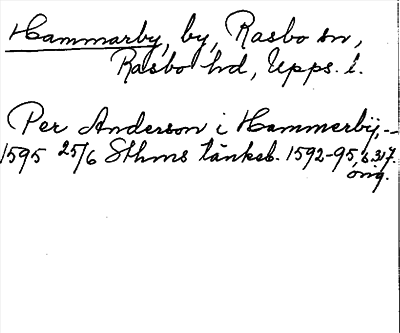 Hammarby, by, Rasbo sn,
Rasbo hd, Upps. l.
Per Anderson i Hammerbÿ, --
1595 25/6 Sthms tänkeb. 1592-95, s. 317.
orig.